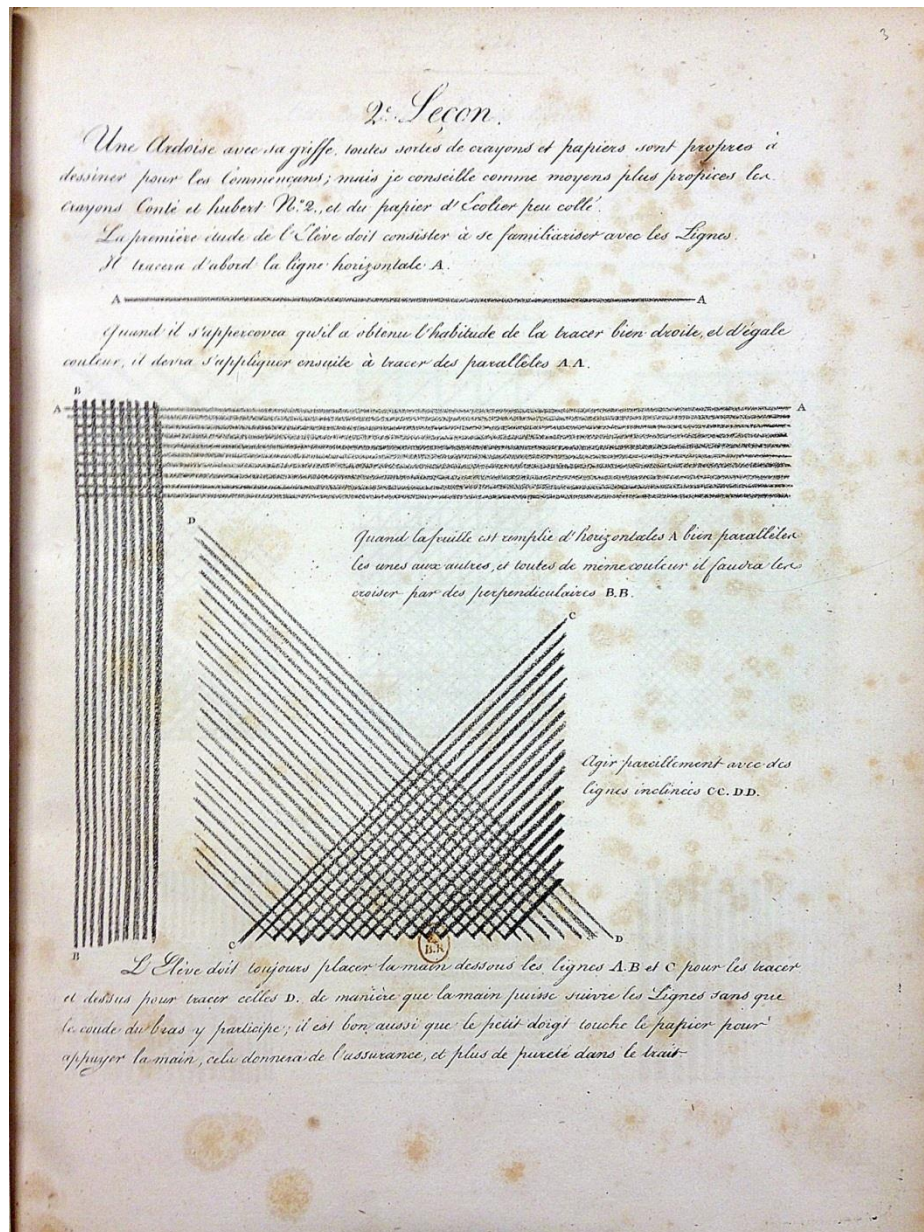 3
2e Leçon.
Une Ardoise avec sa griffe, toutes sortes de crayons et papiers sont propres à
dessiner pour les Commençans; mais je conseille comme moyens plus propices les
crayons Conté et hubert No. 2, et du papier d'Ecolier peu collé.
La première étude de l'Élève doit consister à se familiariser avec les Lignes.
Il tracera d'abord la ligne horizontale A.
A A
Quand il s'appercevra qu'il a obtenu l'habitude de la tracer bien droite, et d'égale
couleur, il devra s'appliquer ensuite à tracer des parallèles A.A.
B
A A
D
Quand la feuille est remplie d'horizontales A bien parallèles
les unes aux autres, et toutes de même couleur il faudra les
croiser par des perpendiculaires B.B.
C
Agir pareillement avec des
lignes inclinées CC. DD.
B C B.R D
L'Élève doit toujours placer la main dessous les lignes A.B et C pour les tracer
et dessus pour tracer celles D. de manière que la main puisse suivre les Lignes sans que
le coude du bras y participe; il est bon aussi que le petit doigt touche le papier pour
appuyer la main, cela donnera de l'assurance, et plus de pureté dans le trait.